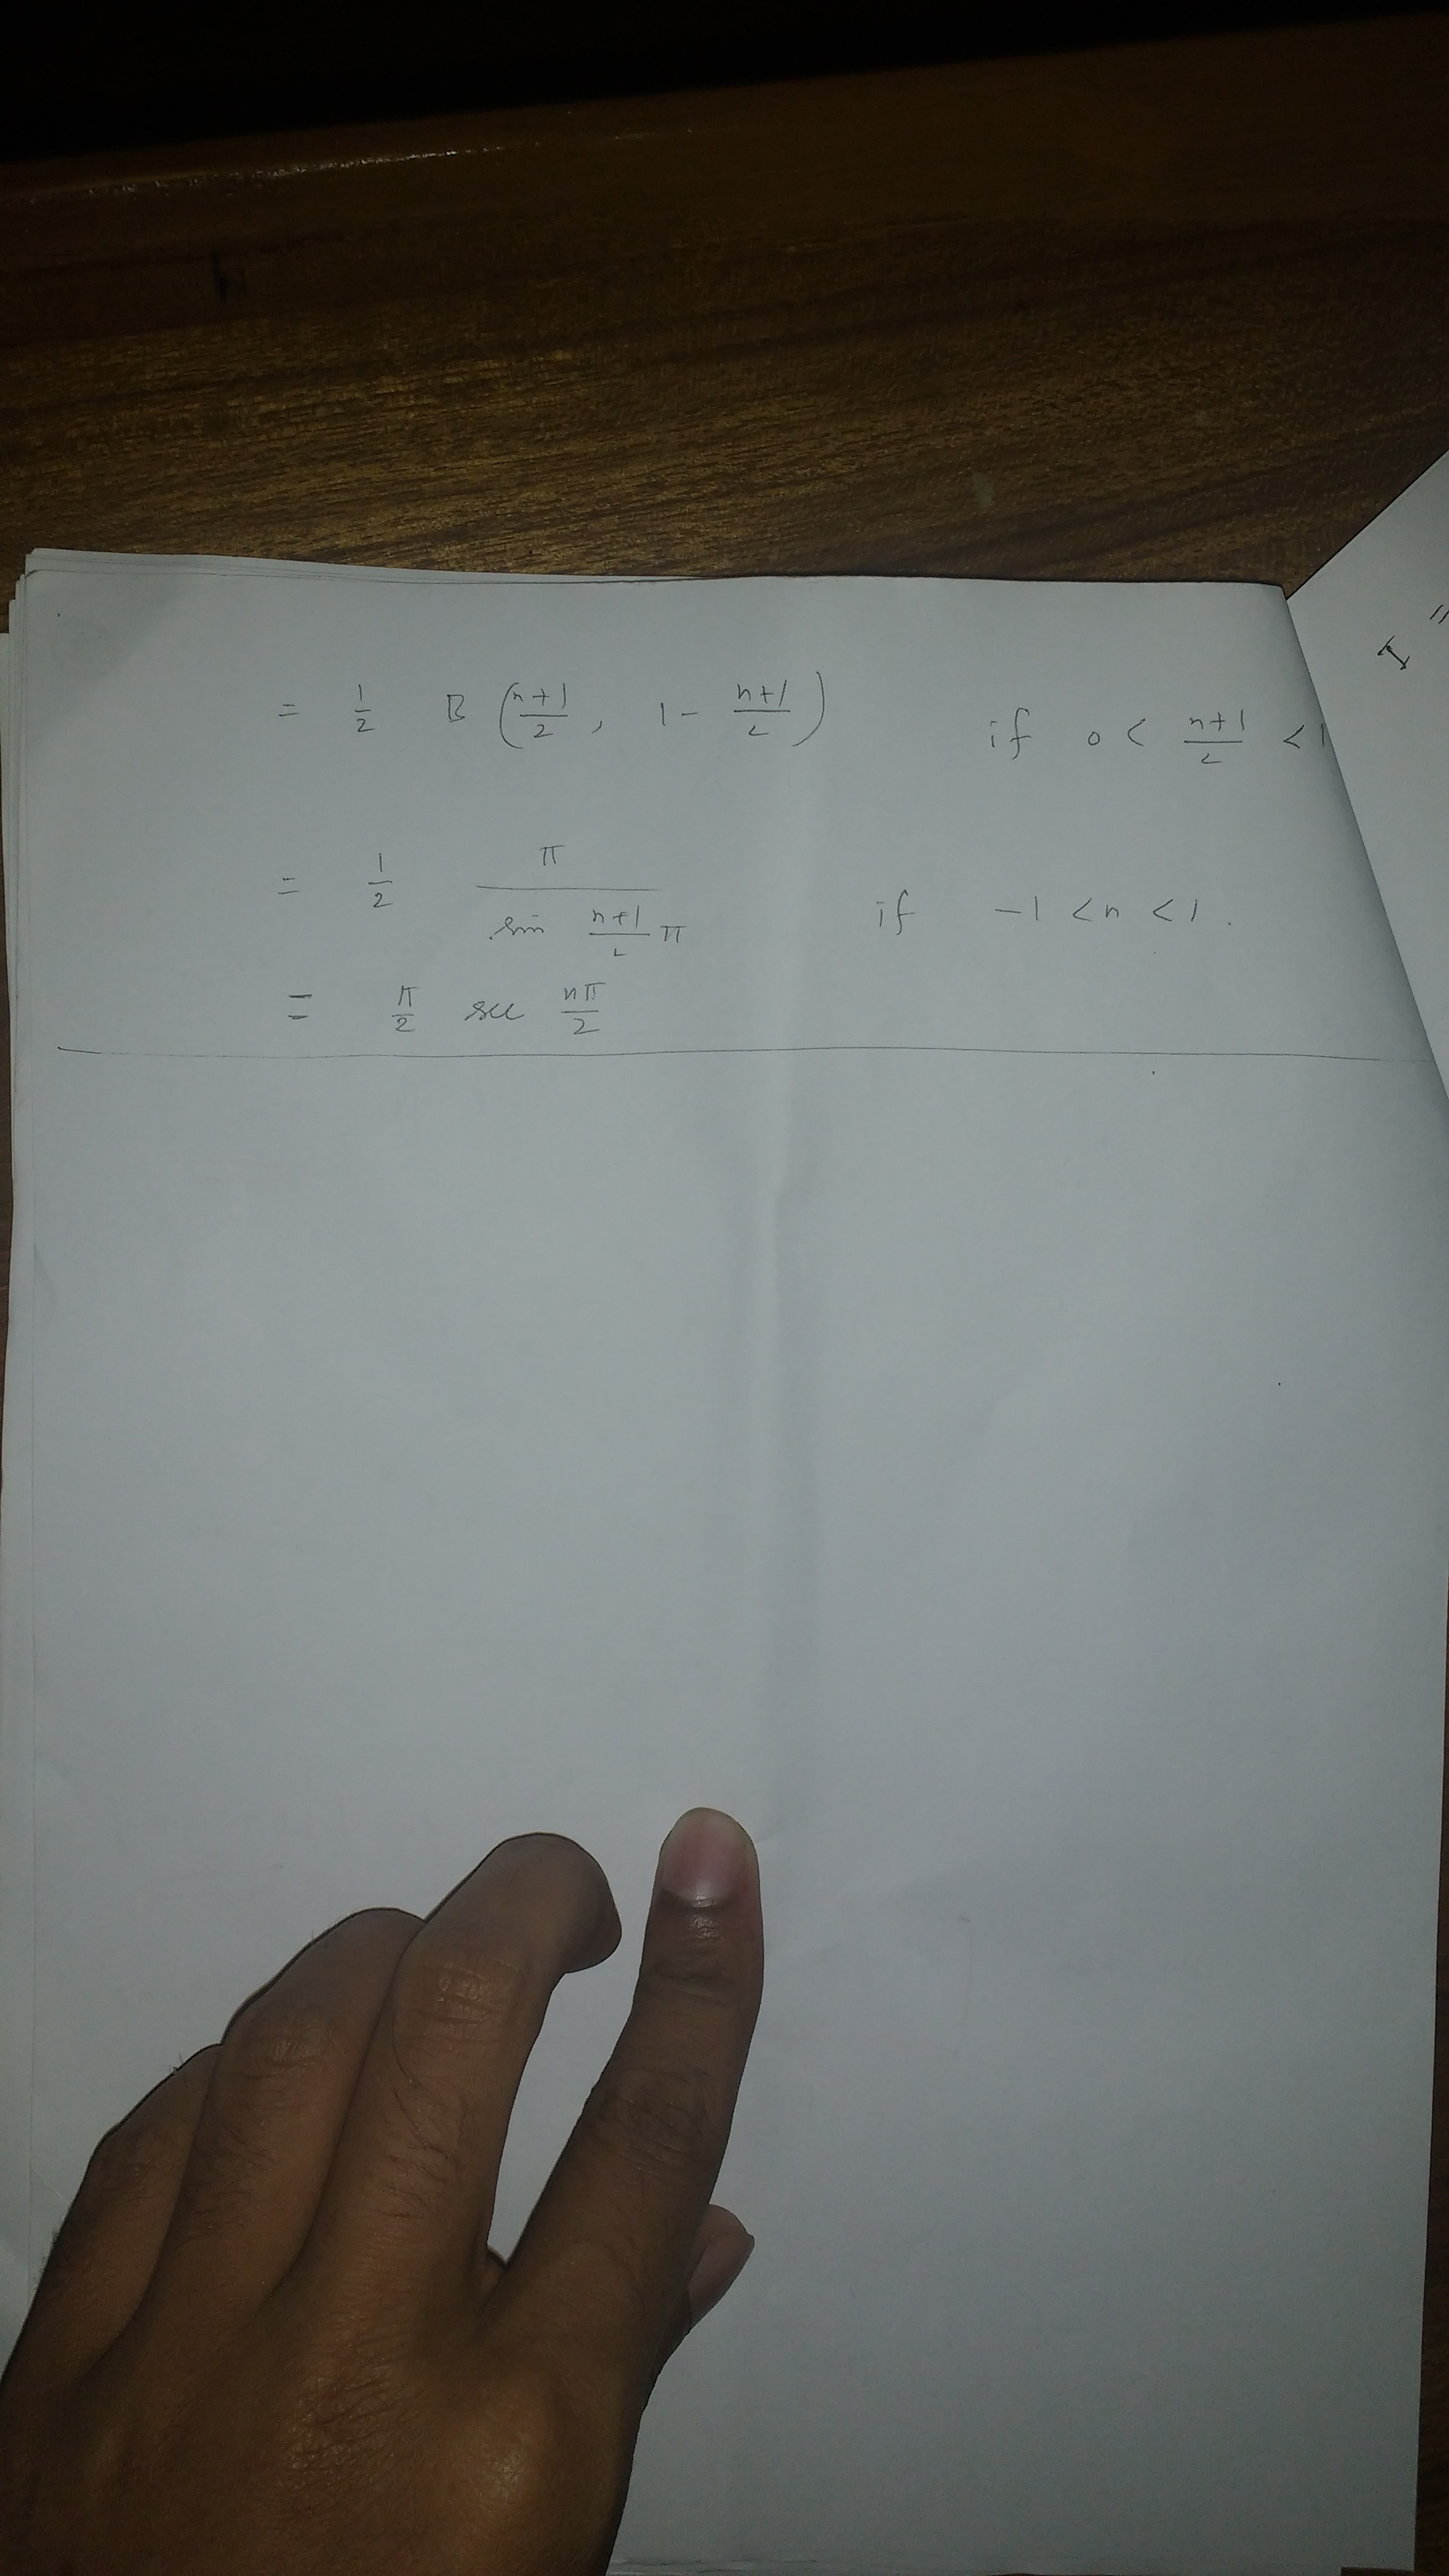 = 1/2 B (n+1/2, 1 - n+1/2) if 0 < n+1/2 < 1
= 1/2 π / sin n+1/2 π if -1 < n < 1.
= π/2 sec nπ/2
I =